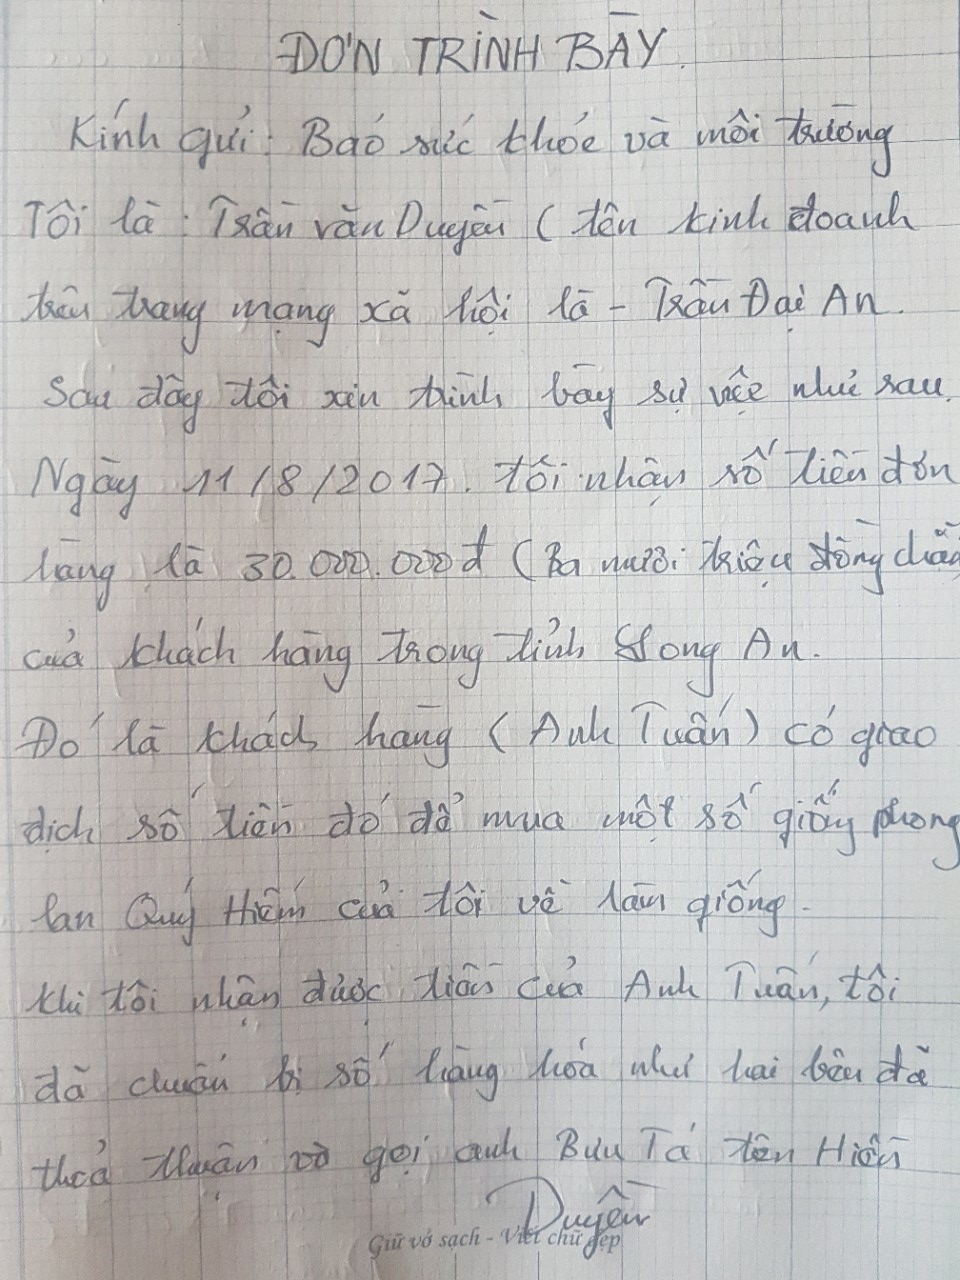 ĐƠN TRÌNH BÀY.
Kính gửi: Báo sức khỏe và môi trường
Tôi là: Trần văn Duyền (tên kinh doanh
trên trang mạng xã hội là - Trần Đại An.
Sau đây tôi xin trình bày sự việc như sau.
Ngày 11/8/2017. tôi nhận số tiền đơn
hàng là 30.000.000đ (Ba mươi triệu đồng chẵn
của khách hàng trong tỉnh Long An.
Đó là khách hàng (Anh Tuấn) có giao
dịch số tiền đó để mua một số giống phong
lan Quý Hiếm của tôi về làm giống.
khi tôi nhận được tiền của Anh Tuấn, tôi
đã chuẩn bị số hàng hóa như hai bên đã
thoả thuận và gọi anh Bưu Tá tên Hiền
Duyền
Giữ vở sạch - Viết chữ đẹp